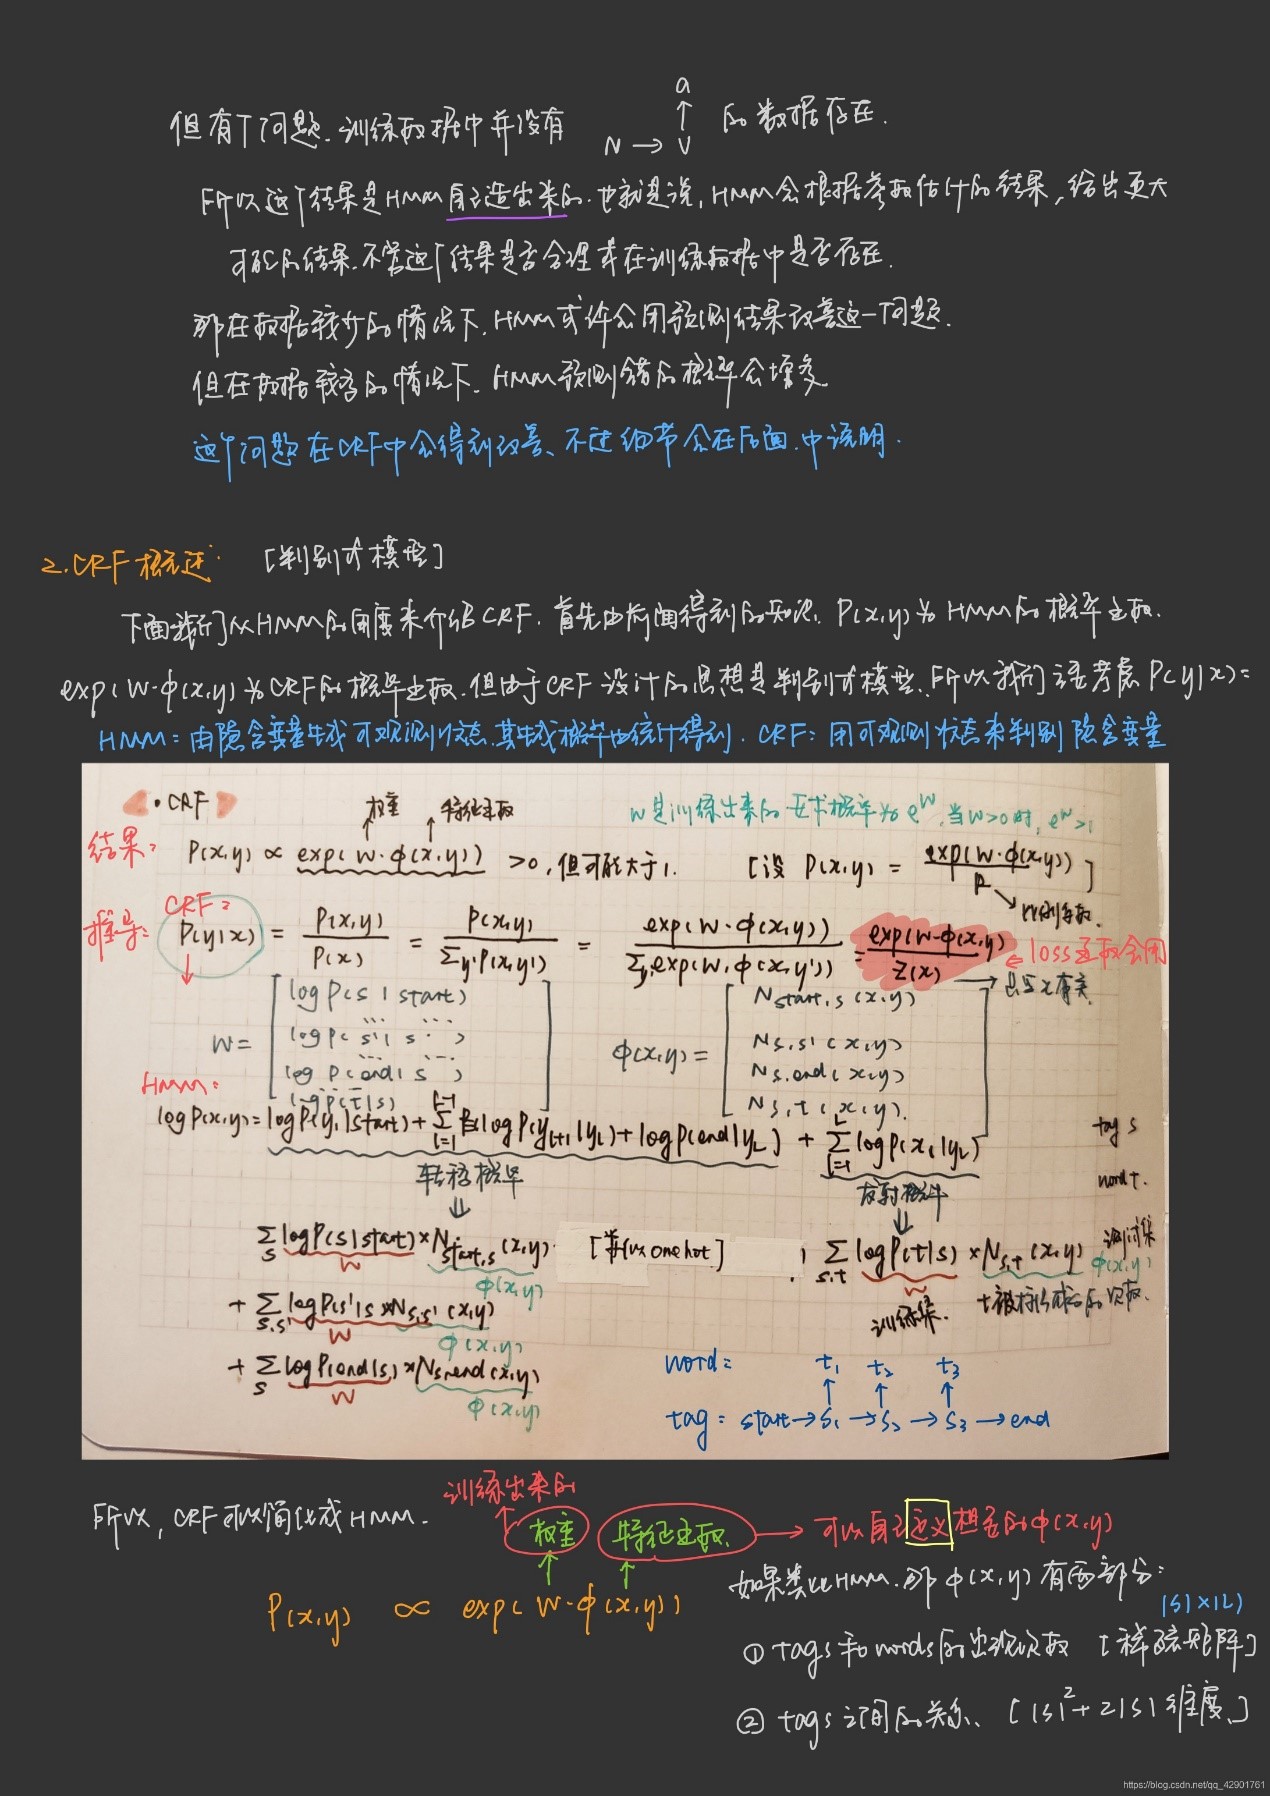 a
但有个问题.训练数据中并没有 N → V 的数据存在.
所以这个结果是HMM自己造出来的.也就是说,HMM会根据参数估计的结果,给出更大
可能的结果.不管这个结果是否合理或在训练数据中是否存在.
那在数据较少的情况下.HMM或许会用预测结果改善这一问题.
但在数据较多的情况下.HMM预测错的概率会增多.
这个问题在CRF中会得到改善、不过细节会在后面.中说明.
2.CRF概述: [判别式模型]
下面我们从HMM的角度来介绍CRF.首先由前面得到的知识.P(x,y)为HMM的概率函数.
exp(W·φ(x,y)为CRF的概率函数.但由于CRF设计的思想是判别式模型.所以我们要考虑P(y|x)=
HMM:由隐含变量生成可观测状态.其生成概率由统计得到. CRF:用可观测状态来判别隐含变量
·CRF
权重 特征函数
W是训练出来的 要求概率为e^W,当W>0时,e^W>1
结果: P(x,y) ∝ exp(W·φ(x,y)) >0,但可能大于1. [设 P(x,y) = exp(W·φ(x,y)) / R ]
R → 比例参数.
推导: CRF:
P(y|x) = P(x,y) / P(x) = P(x,y) / Σy' P(x,y') = exp(W·φ(x,y)) / Σy' exp(W·φ(x,y')) = exp(W·φ(x,y) / Z(x) ← loss函数会用
→ 只与x有关.
W= [ log P(s|start)
... ...
log P(s'|s)
... ...
log P(end|s)
log P(t|s) ]
φ(x,y)= [ Nstart,s(x,y)
Ns,s'(x,y)
Ns,end(x,y)
Ns,t(x,y). ]
HMM:
logP(x,y)=logP(y1|start)+Σ(l=1,L-1) logP(yl+1|yl)+logP(end|yL) + Σ(l=1,L) logP(xl|yl)
转移概率 发射概率
tag s
word t.
Σs logP(s|start)×Nstart,s(x,y) [类似onehot] Σs,t logP(t|s)×Ns,t(x,y) 测试集
W φ(x,y) W φ(x,y)
+ Σs,s' logP(s'|s×Ns,s'(x,y) 训练集.
W φ(x,y)
+ Σs logP(end|s)×Ns,end(x,y)
W φ(x,y)
word: t1 t2 t3
tag: start→s1→s2→s3→end
训练出来的
所以,CRF可以简化成HMM. 权重 特征函数. → 可以自己定义想要的φ(x,y)
P(x,y) ∝ exp(W·φ(x,y))
如果类比HMM.那φ(x,y)有两部分:
|S|×|L|
① tags和words的出现次数 [稀疏矩阵]
② tags之间的关系、[|S|²+2|S|维度.]
https://blog.csdn.net/qq_42901761